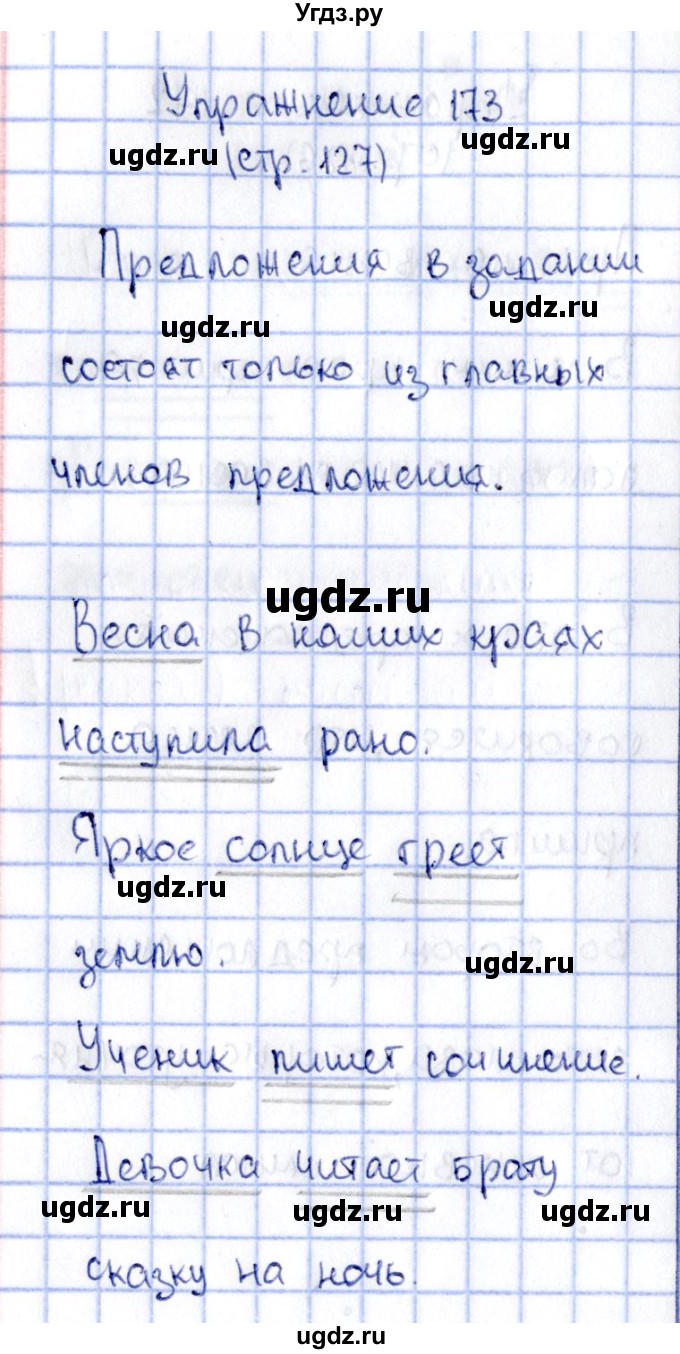 Угдз.ру
Упражнение 173
ugdz.ru
ugdz.ru
(стр. 127)
Предложения в задании
ugdz.ru
ugdz.ru
состоят только из главных
членов предложения.
ugdz.ru
Весна в наших краях
наступила рано.
Яркое солнце греет
ugdz.ru
землю.
ugdz.ru
Ученик пишет сочинение.
Девочка читает брату
ugdz.ru
ugdz.ru
ugdz.ru
сказку на ночь.
ugdz.ru